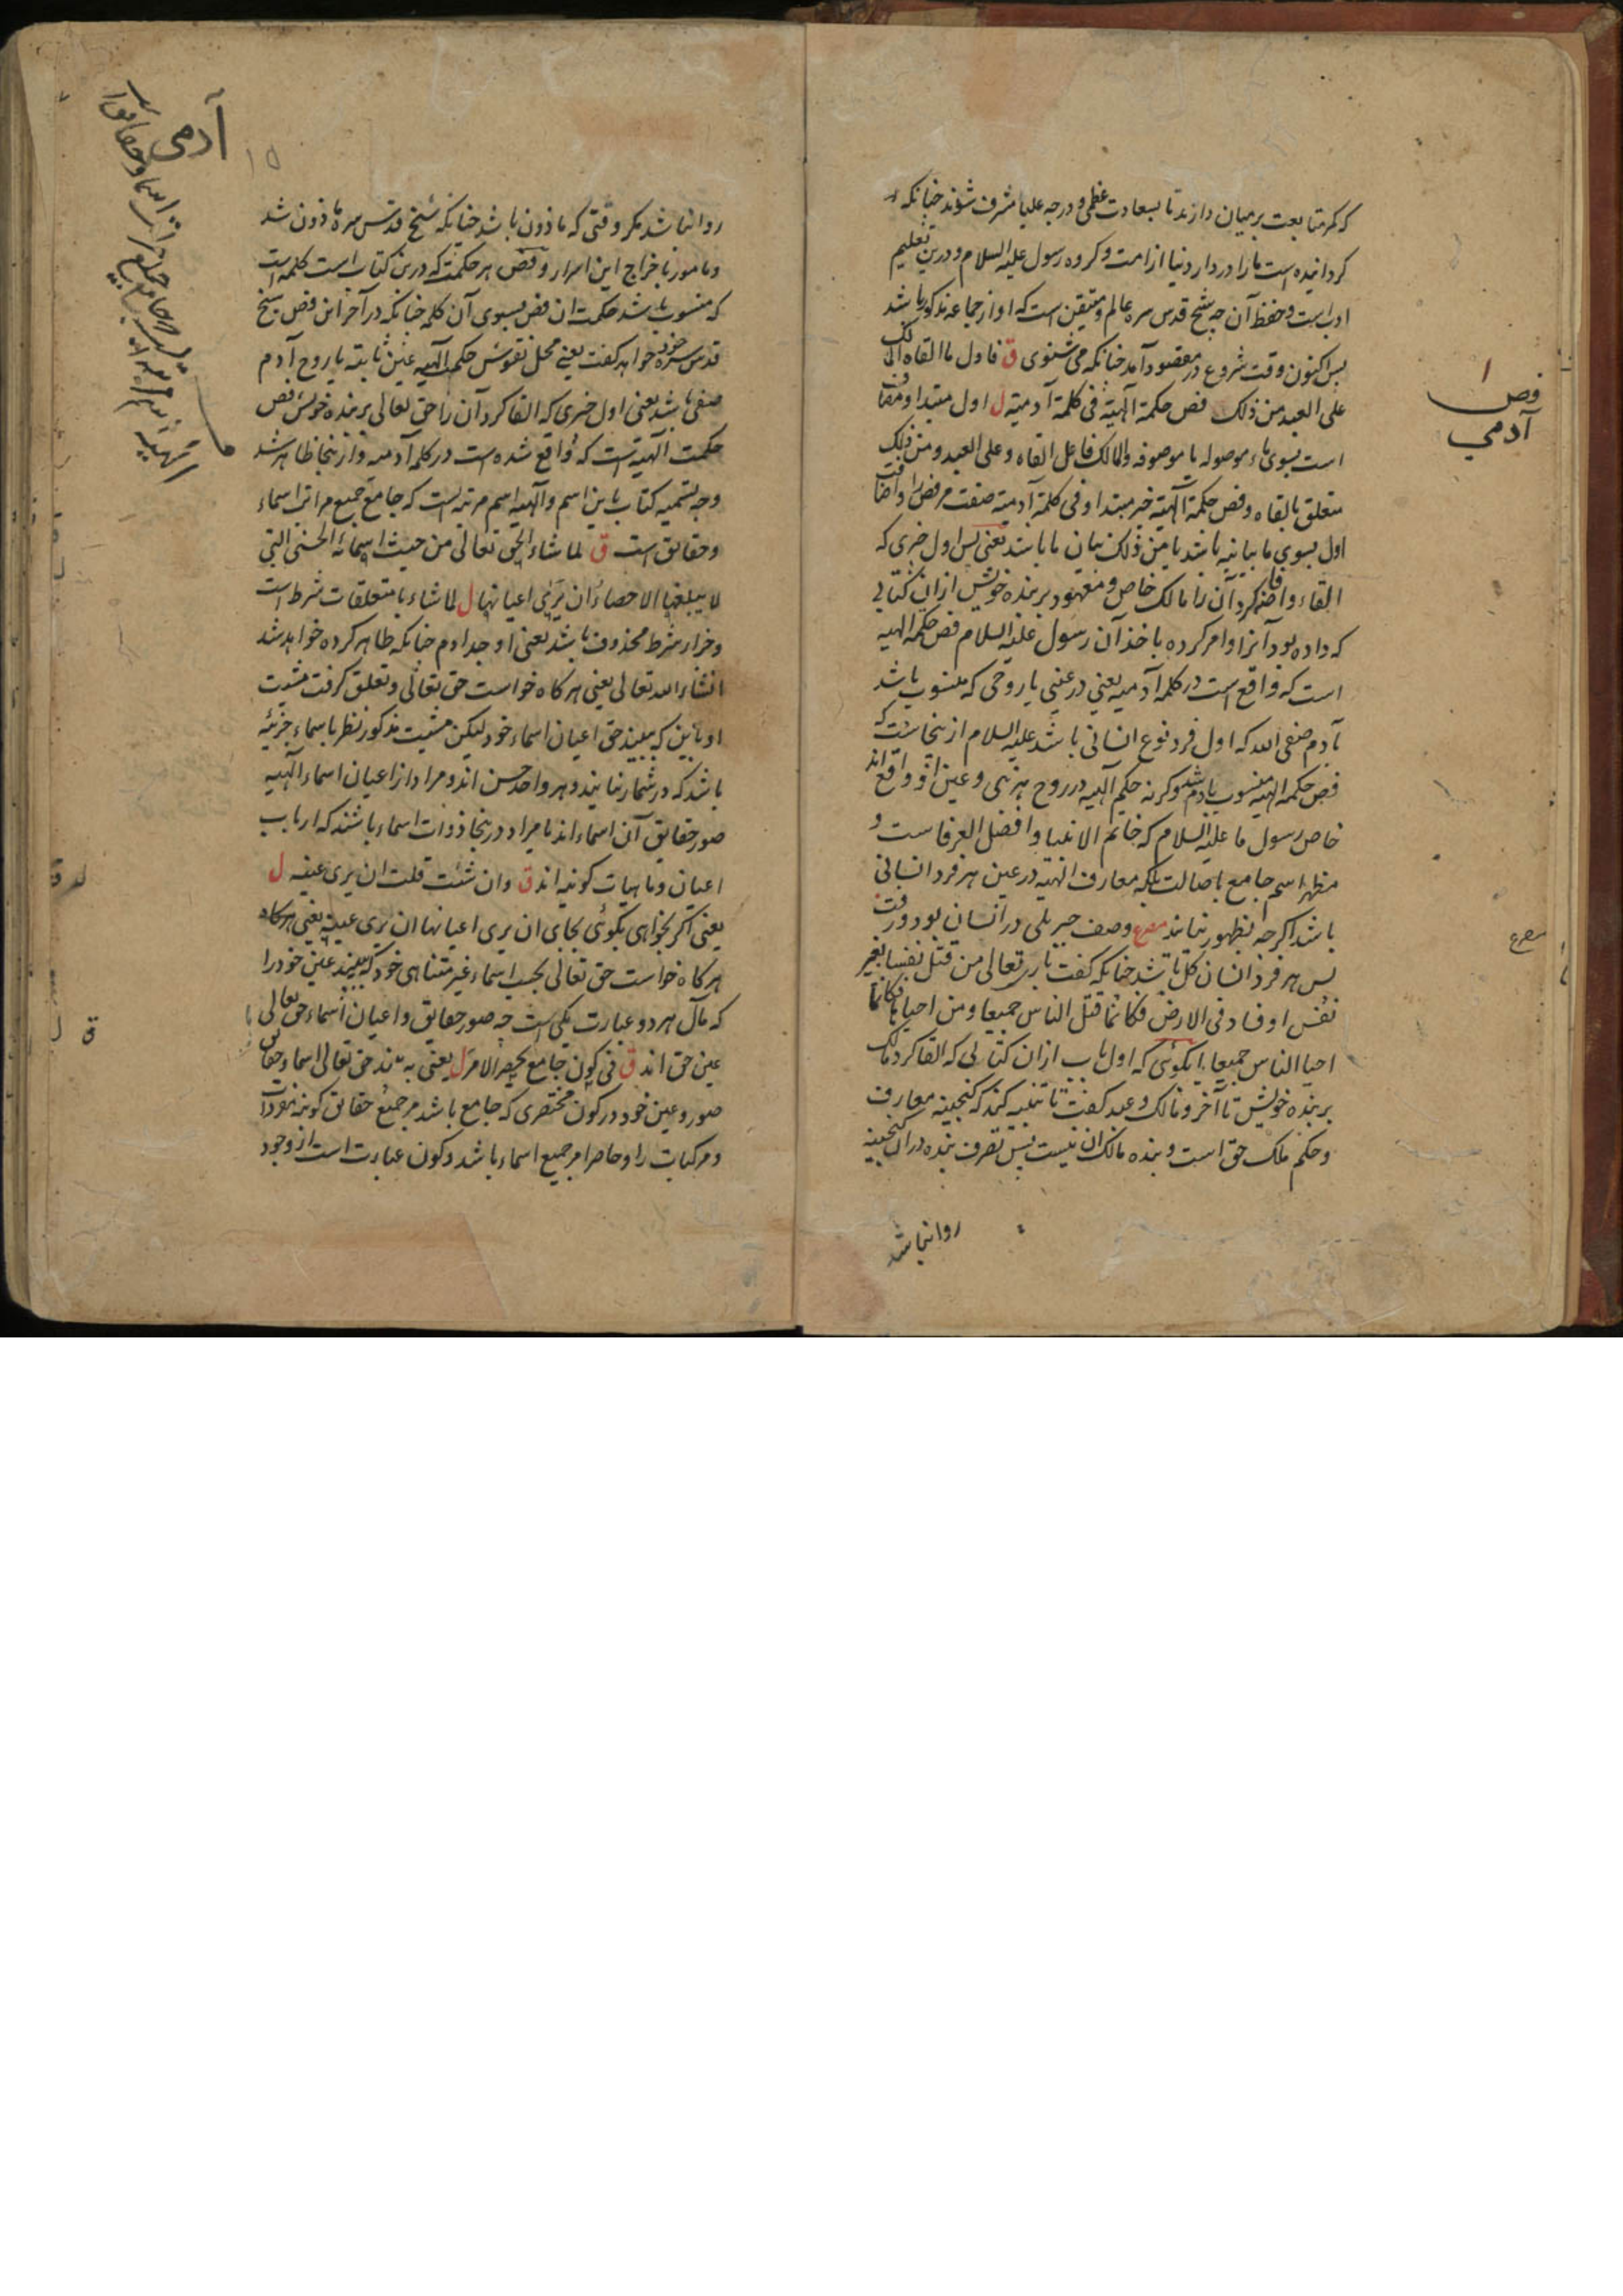 که کمر متابعت بر میان دارند تا بسعادت عظمی و درجه علیا مشرف شوند چنانکه
کردانیده است ما را در دار دنیا از امت و کروه رسول علیه السلام و درین تعلیم
ادب است و حفظ آن چه شیخ قدس سره عالم و متیقن است که او از جماعه مذکور باشد
پس اکنون وقت شروع در مقصود آمد چنانکه می شنوی ق فاول ما القاه المالک
علی العبد من ذلک فص حکمة الهیة فی کلمة آدمیة ل اول مبتدا و مضاف
است بسوی ماء موصوله یا موصوفه و المالک فاعل القاه و علی العبد و من ذلک
متعلق بالقاه و فص حکمة الهیة خبر مبتدا و فی کلمة آدمیة صفت مر فص را و اضافت
اول بسوی ما بیانیه باشد یا من ذلک بیان ما باشد یعنی پس اول خبری که
القاء و افاضه کرد آن را مالک خاص و معهود بر بنده خویش از ان کتابی
که داده بود آنرا و امر کرده باخذ آن رسول علیه السلام فص حکمة الهیه
است که واقع است در کلمه آدمیه یعنی در عینی یا روحی که منسوب باشد
بآدم صفی الله که اول فرد نوع انسانی باشد علیه السلام از ینجاست که
فص حکمه الهیه منسوب بآدم شد و کرنه حکم الهیه در روح هر نبی و عین او واقع اند
خاص رسول ما علیه السلام که خاتم الانبیا و افضل العرفاست و
مظهر اسم جامع باصالت بلکه معارف الهیه در عین هر فرد انسانی
باشد اکرچه بظهور نیایند مصرع وصف جبریلی در انسان بود و رفت
پس هر فرد انسان کل باشد چنانکه کفت باری تعالی من قتل نفسا بغیر
نفس او فساد فی الارض فکانما قتل الناس جمیعا و من احیاها فکانما
احیا الناس جمیعا یا بکوئی که اول باب از ان کتابی که القا کرد مالک
بر بنده خویش تا آخر و مالک و عبد کفت تا تنبیه کند که کنجینه معارف
و حکم ملک حق است و بنده مالک ان نیست پس تصرف بنده در ان کنجینه
روا نباشد
فص ۱
آدمی
مصرع
آدمی
۱۵
روا نباشد مکر وقتی که ماذون باشد چنانکه شیخ قدس سره ماذون شد
و مامور باخراج این اسرار و فص هر حکمت که درین کتاب است کلمه است
که منسوب باشد حکمت ان فص بسوی آن کلمه چنانکه در آخر این فص شیخ
قدس سره خود خواهد کفت یعنی محل نقوش حکمت الهیه عین ثابته یا روح آدم
صفی باشد یعنی اول خبری که القا کرد آن را حق تعالی بر بنده خویش فص
حکمت الهیه است که واقع شده است در کلمه آدمیه و از ینجا ظاهر شد
وجه تسمیه کتاب باین اسم و الهیه اسم مرتبه است که جامع جمیع مراتب اسماء
و حقایق است ق لما شاء الحق تعالی من حیث اسمائه الحسنی التی
لا یبلغها الاحصاء ان یری اعیانها ل لما شاء با متعلقات شرط است
و جزاء شرط محذوف باشد یعنی اوجد ادم چنانکه ظاهر کرده خواهد شد
انشاء الله تعالی یعنی هرکاه خواست حق تعالی و تعلق کرفت مشیت
او باین که ببیند حق اعیان اسماء خود لیکن مشیت مذکور نظر باسماء جزئیه
باشد که در شمار نیایند و هر واحد حسن اند و مراد از اعیان اسماء الهیه
صور حقایق آن اسماء اند یا مراد درینجا ذوات اسماء باشند که ارباب
اعیان و ماهیات کونیه اند ق و ان شئت قلت ان یری عینه ل
یعنی اکر بخواهی بکوئی بجای ان یری اعیانها ان یری عینه یعنی هرکاه
هرکاه خواست حق تعالی بحسب اسماء غیر متناهی خود که ببیند عین خود را
که مآل هر دو عبارت یکی است چه صور حقایق و اعیان اسماء حق تعالی
عین حق اند ق فی کون جامع یحصر الامر ل یعنی به بیند حق تعالی اسما و حقایق
صور و عین خود در کون مختصری که جامع باشد مر جمیع حقایق کونیه مفردات
و مرکبات را و حاصر امر جمیع اسماء باشد و کون عبارت است از وجود
ق ل